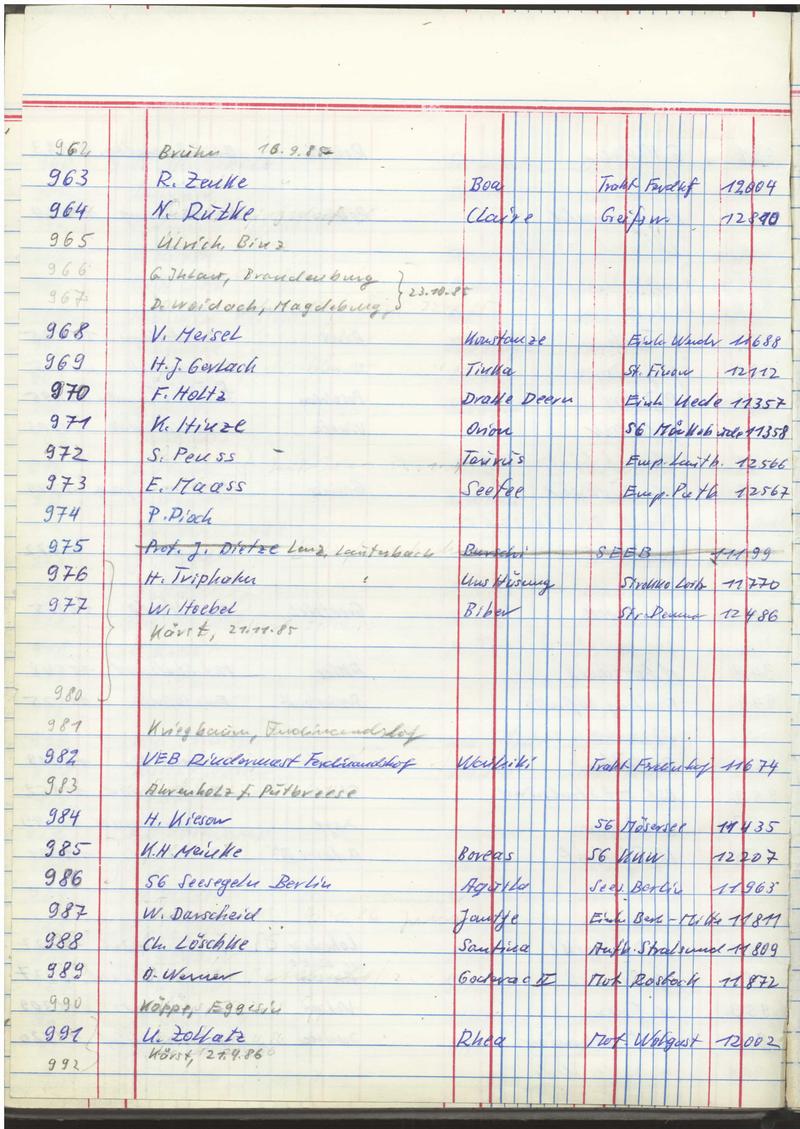 962 Bruhn 16.9.85
963 R. Zenke Boa Trakt Ferdhf 12004
964 N. Rütke Claire Greifsw. 12810
965 Ulrich Binz
966 Brandenburg
967 D. Weidach, Magdeburg, } 23.10.85
968 V. Meisel Konstanze Einh. 11688
969 H.J. Gerlach Tinka St. Finow 12112
970 F. Holtz Drake Deern Einh Uede 11357
971 K. Hinze Orion SG 11358
972 S. Peuss Taurus Emp. Lauth. 12566
973 E. Maass Seefee Emp. Putb 12567
974 P. Pioch
975 Prof. J. Dietze Lenz, Lauterbach Burschi SEEB 11199
976 H. Triphahn Uns Hüsung Loitz 11770
977 W. Hoebel Biber St. 12486
Kärst, 21.11.85
980
981 Krieghaum, Ferdinandshof
982 VEB Rindermast Ferdinandshof Trakt Ferdinhof 11674
983 Ahrenholz f. Putbreese
984 H. Kiesow SG Mösersee 11435
985 K.H Meinke Boreas SG KKW 12207
986 SG Seesegeln Berlin Aquila Sees. Berlin 11963
987 W. Darscheid Jantje Einh Berl-Mitte 11811
988 Ch. Löschke Santina Aufb. Stralsund 11809
989 D. Werner II Mot Rosbock 11872
990 Köppe, Eggesin
991 U. Zollatz Rhea Mot Wolgast 12002
992 Kärst, 21.4.86